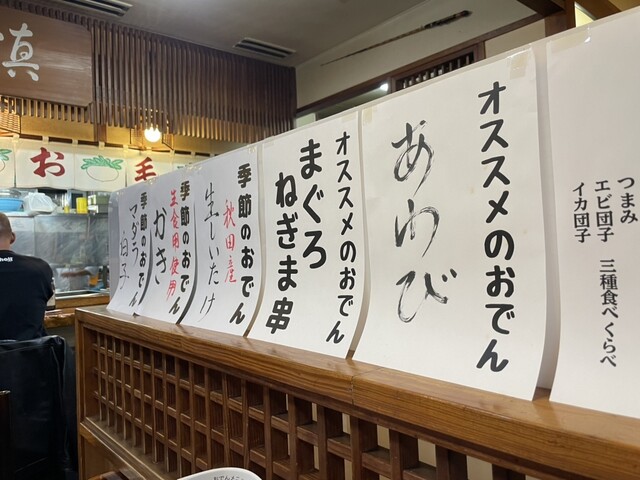 つまみ
エビ団子 三種食べくらべ
イカ団子
オススメのおでん
あわび
オススメのおでん
まぐろ
ねぎま串
季節のおでん
秋田産
生しいたけ
季節のおでん
生食用使用
かき
季節のおでん
マダラ
白子
お